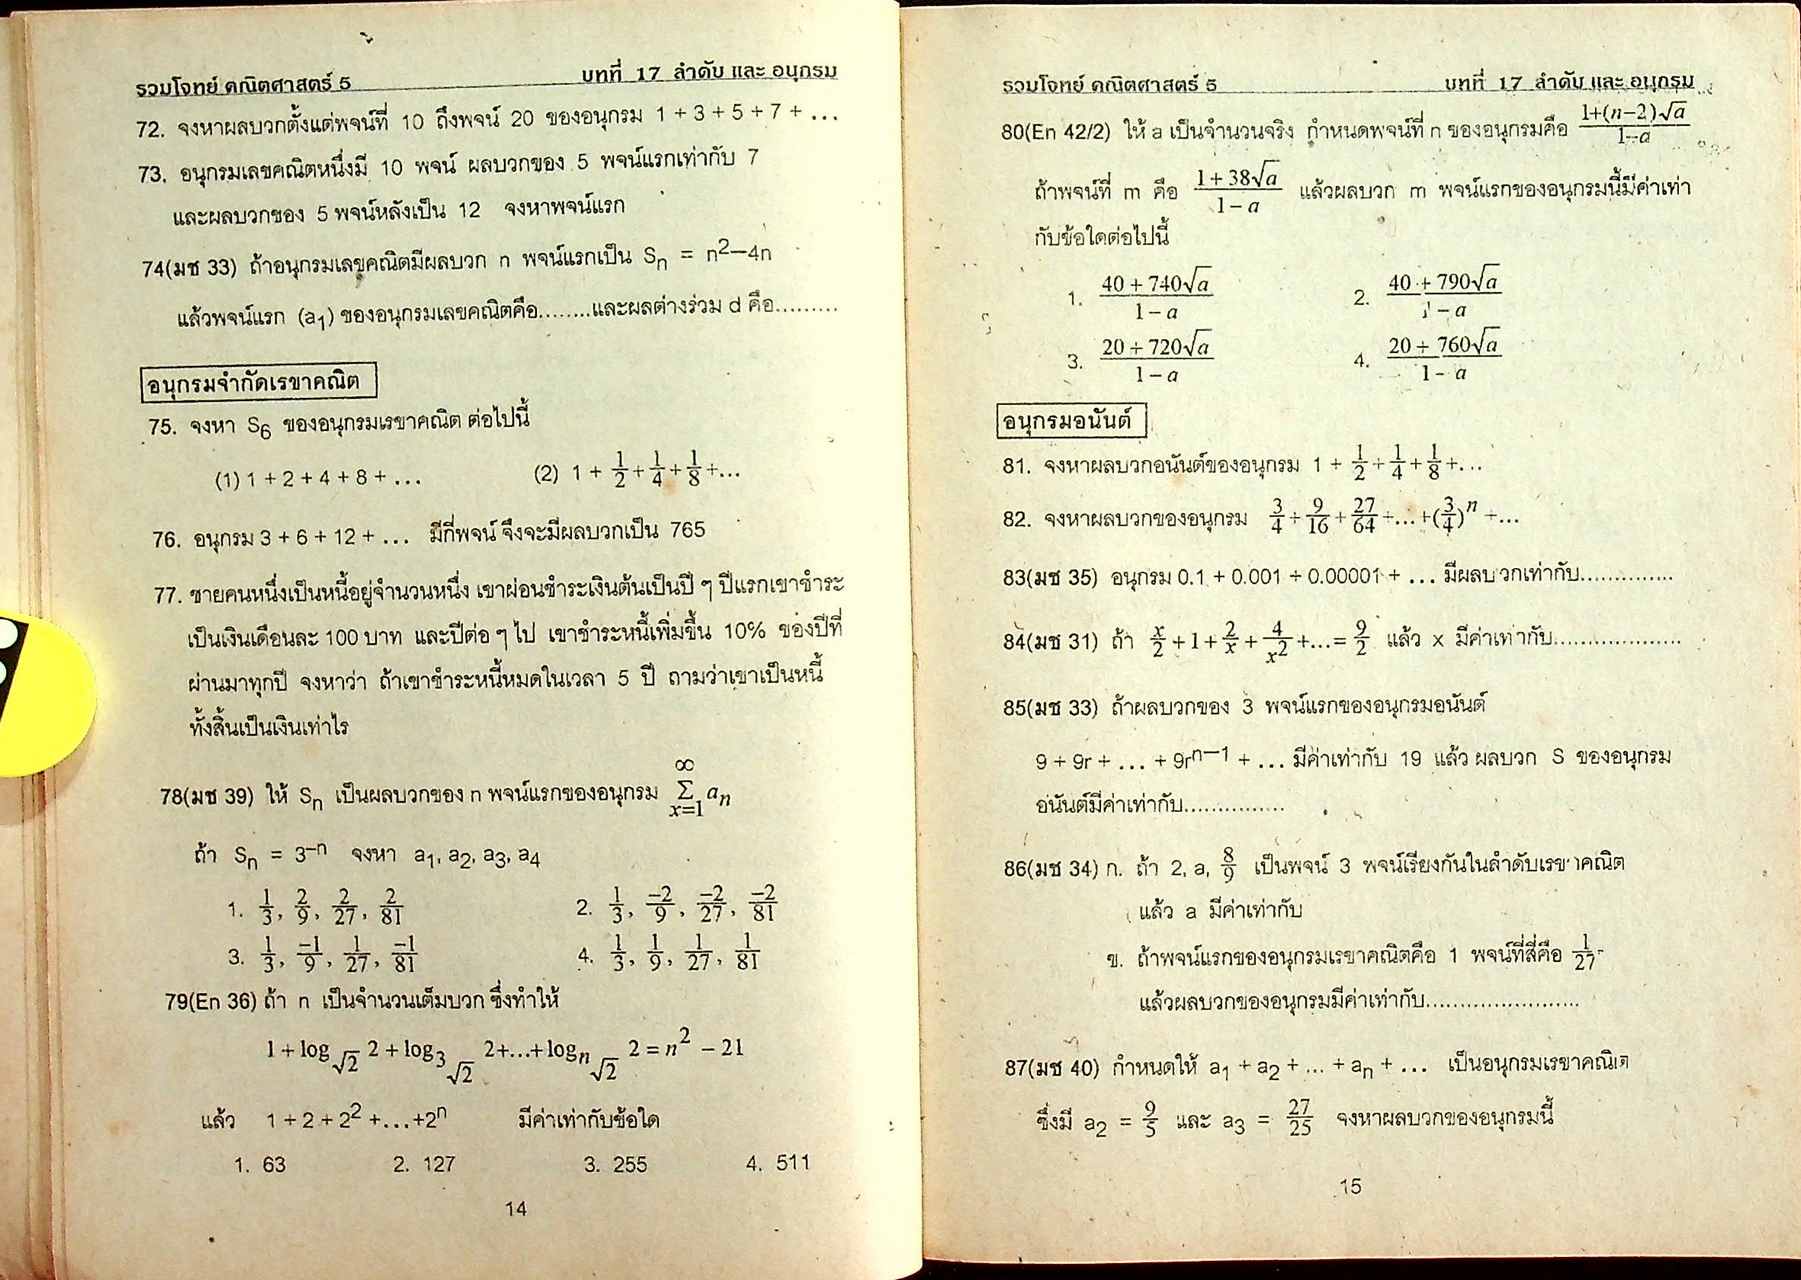 รวมโจทย์ คณิตศาสตร์ 5 บทที่ 17 ลำดับ และ อนุกรม
72. จงหาผลบวกตั้งแต่พจน์ที่ 10 ถึงพจน์ 20 ของอนุกรม 1 + 3 + 5 + 7 + ...
73. อนุกรมเลขคณิตหนึ่งมี 10 พจน์ ผลบวกของ 5 พจน์แรกเท่ากับ 7
และผลบวกของ 5 พจน์หลังเป็น 12 จงหาพจน์แรก
74(มช 33) ถ้าอนุกรมเลขคณิตมีผลบวก n พจน์แรกเป็น Sₙ = n²–4n
แล้วพจน์แรก (a₁) ของอนุกรมเลขคณิตคือ........และผลต่างร่วม d คือ.........
อนุกรมจำกัดเรขาคณิต
75. จงหา S₆ ของอนุกรมเรขาคณิต ต่อไปนี้
(1) 1 + 2 + 4 + 8 + ... (2) 1 + 1/2 + 1/4 + 1/8 +...
76. อนุกรม 3 + 6 + 12 + ... มีกี่พจน์ จึงจะมีผลบวกเป็น 765
77. ชายคนหนึ่งเป็นหนี้อยู่จำนวนหนึ่ง เขาผ่อนชำระเงินต้นเป็นปี ๆ ปีแรกเขาชำระ
เป็นเงินเดือนละ 100 บาท และปีต่อ ๆ ไป เขาชำระหนี้เพิ่มขึ้น 10% ของปีที่
ผ่านมาทุกปี จงหาว่า ถ้าเขาชำระหนี้หมดในเวลา 5 ปี ถามว่าเขาเป็นหนี้
ทั้งสิ้นเป็นเงินเท่าไร
78(มช 39) ให้ Sₙ เป็นผลบวกของ n พจน์แรกของอนุกรม ∞ Σ x=1 aₙ
ถ้า Sₙ = 3⁻ⁿ จงหา a₁, a₂, a₃, a₄
1. 1/3, 2/9, 2/27, 2/81 2. 1/3, -2/9, -2/27, -2/81
3. 1/3, -1/9, 1/27, -1/81 4. 1/3, 1/9, 1/27, 1/81
79(En 36) ถ้า n เป็นจำนวนเต็มบวก ซึ่งทำให้
1 + log √2 2 + log 3 √2 2 +...+ log n √2 2 = n² – 21
แล้ว 1 + 2 + 2² +...+2ⁿ มีค่าเท่ากับข้อใด
1. 63 2. 127 3. 255 4. 511
14
รวมโจทย์ คณิตศาสตร์ 5 บทที่ 17 ลำดับ และ อนุกรม
80(En 42/2) ให้ a เป็นจำนวนจริง กำหนดพจน์ที่ n ของอนุกรมคือ (1+(n–2)√a)/(1–a)
ถ้าพจน์ที่ m คือ (1+38√a)/(1–a) แล้วผลบวก m พจน์แรกของอนุกรมนี้มีค่าเท่า
กับข้อใดต่อไปนี้
1. (40+740√a)/(1–a) 2. (40+790√a)/(1–a)
3. (20+720√a)/(1–a) 4. (20+760√a)/(1–a)
อนุกรมอนันต์
81. จงหาผลบวกอนันต์ของอนุกรม 1 + 1/2 + 1/4 + 1/8 +...
82. จงหาผลบวกของอนุกรม 3/4 + 9/16 + 27/64 +...+(3/4)ⁿ +...
83(มช 35) อนุกรม 0.1 + 0.001 + 0.00001 + ... มีผลบวกเท่ากับ..............
84(มช 31) ถ้า x/2 + 1 + 2/x + 4/x² +...= 9/2 แล้ว x มีค่าเท่ากับ...................
85(มช 33) ถ้าผลบวกของ 3 พจน์แรกของอนุกรมอนันต์
9 + 9r + ... + 9rⁿ⁻¹ + ... มีค่าเท่ากับ 19 แล้ว ผลบวก S ของอนุกรม
อนันต์มีค่าเท่ากับ...............
86(มช 34) ก. ถ้า 2, a, 8/9 เป็นพจน์ 3 พจน์เรียงกันในลำดับเรขาคณิต
แล้ว a มีค่าเท่ากับ
ข. ถ้าพจน์แรกของอนุกรมเรขาคณิตคือ 1 พจน์ที่สี่คือ 1/27
แล้วผลบวกของอนุกรมมีค่าเท่ากับ.......................
87(มช 40) กำหนดให้ a₁ + a₂ + ... + aₙ + ... เป็นอนุกรมเรขาคณิต
ซึ่งมี a₂ = 9/5 และ a₃ = 27/25 จงหาผลบวกของอนุกรมนี้
15